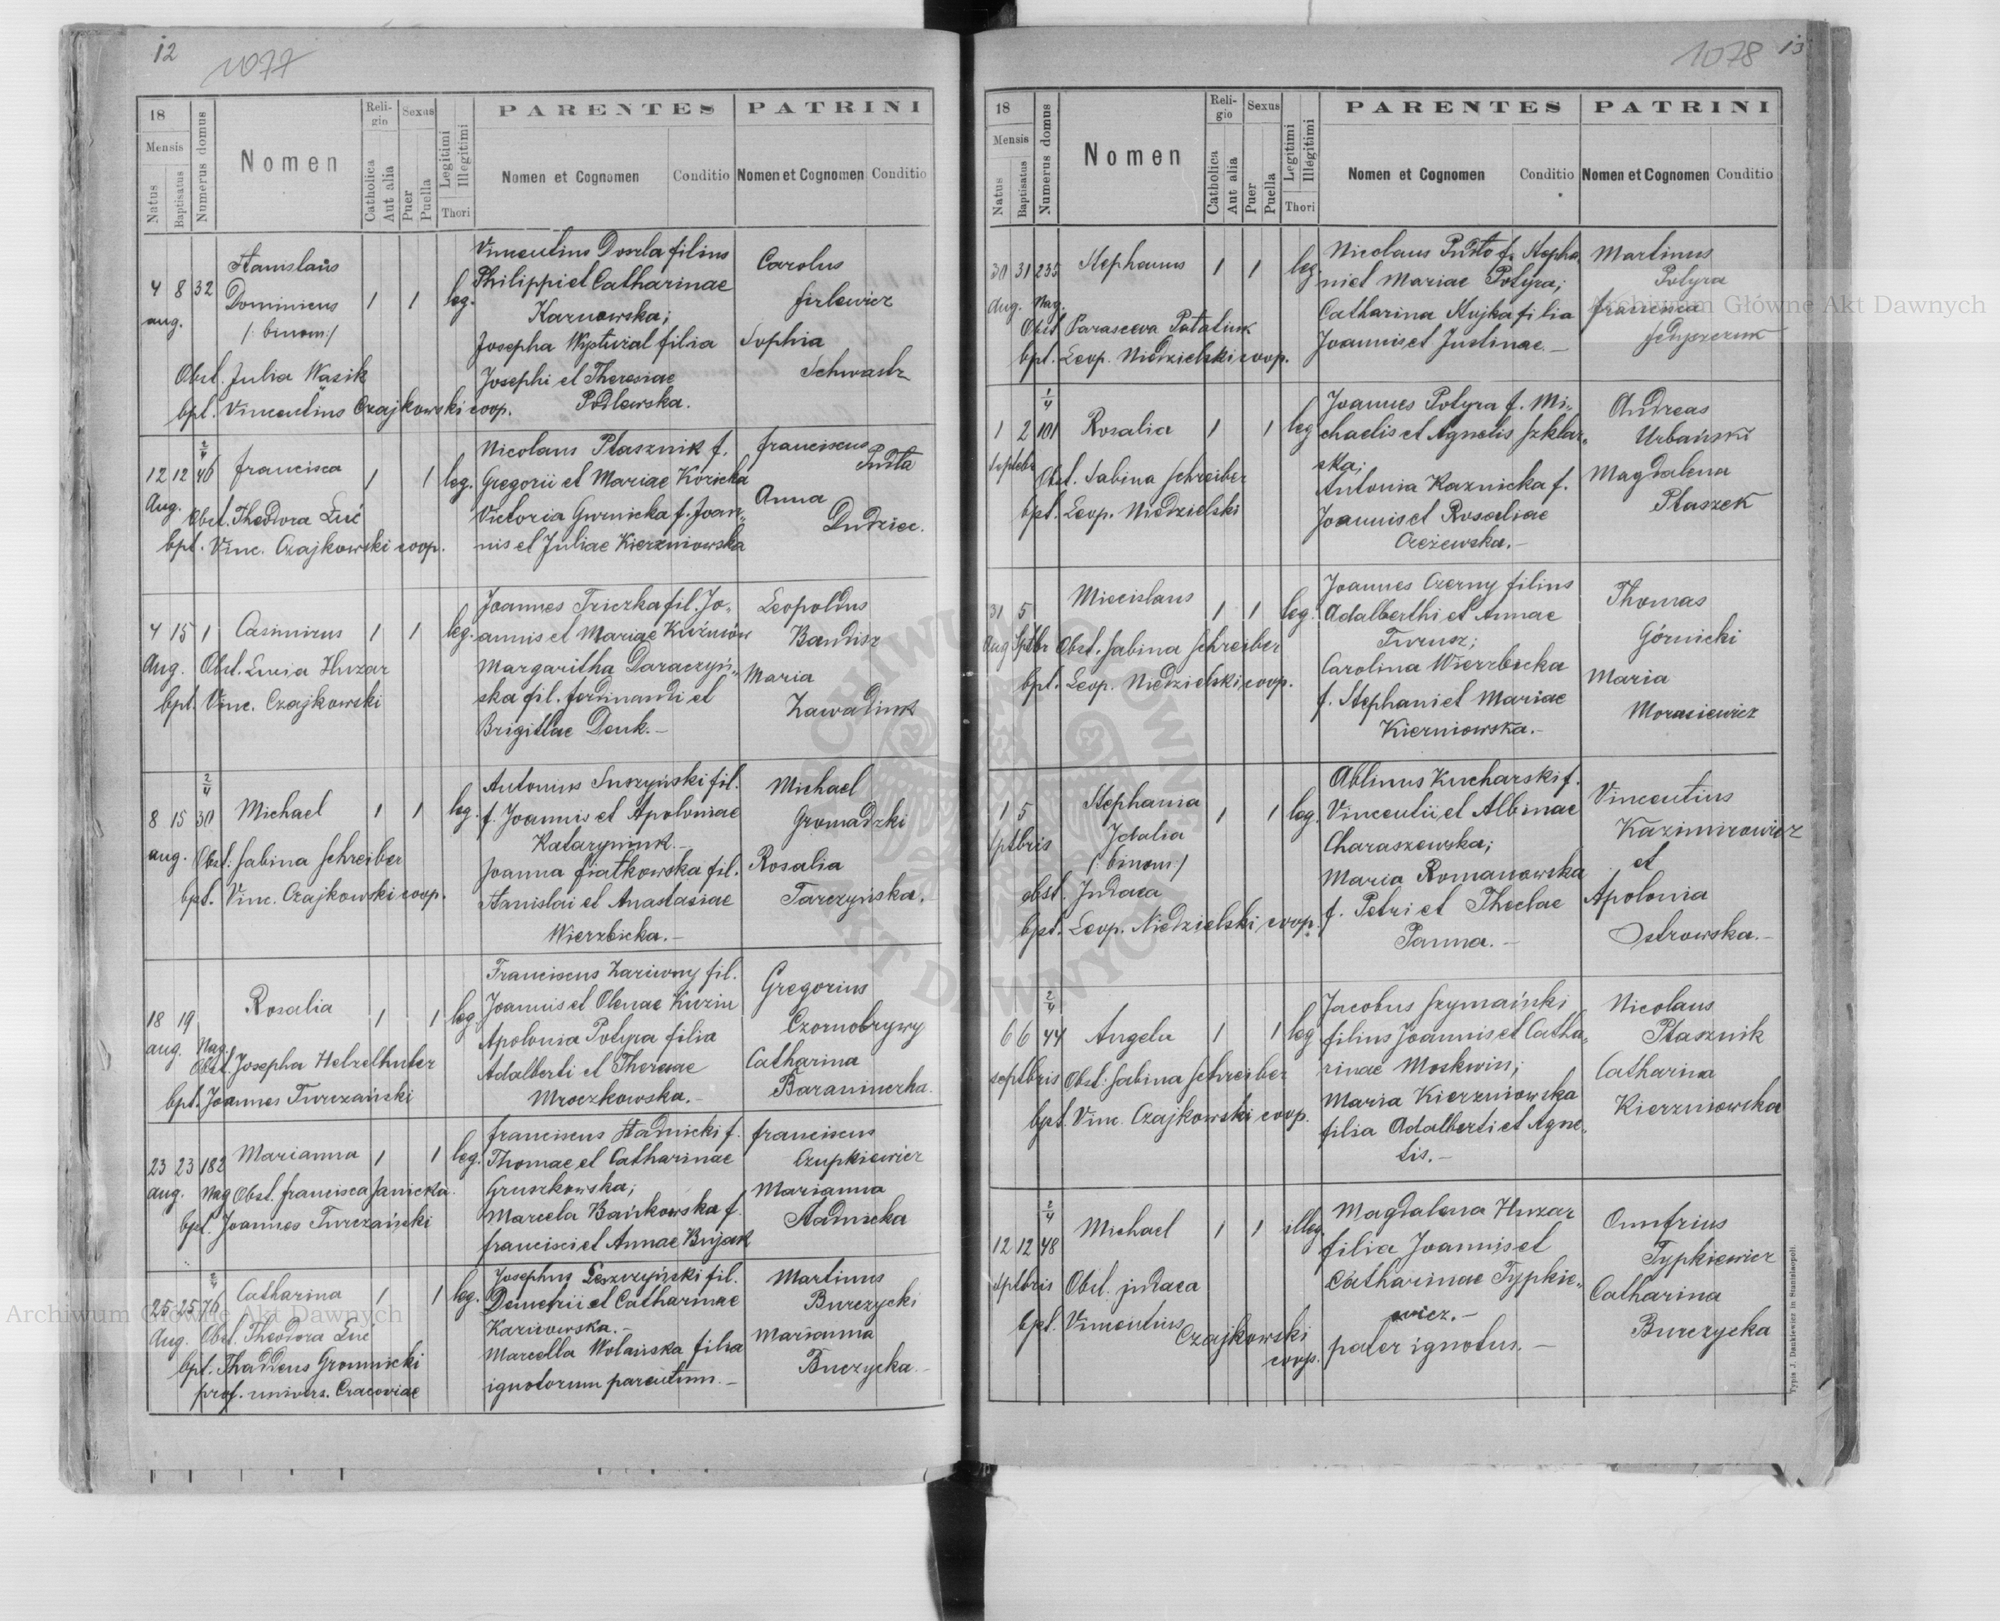 12
1077
18
Mensis
Natus
Baptisatus
Numerus domus
Nomen
Religio
Catholica
Aut alia
Sexus
Puer
Puella
Legitimi
Illegitimi
Thori
PARENTES
Nomen et Cognomen
Conditio
PATRINI
Nomen et Cognomen
Conditio
4 8 32
aug.
Stanislaus
Dominicus
/: binom:/
1 1 leg.
Obst. Julia Wąsik
bpt. Vincentius Czajkowski coop.
Philippi et Catharinae
Karnowska;
Josephi et Theresiae
Podlewska.
Carolus
Firlewicz
Sophia
12 12 2/4 46
Aug.
Francisca
1 1 leg.
Obst. Theodora Łuć
bpt. Vinc. Czajkowski coop.
Nicolaus Ptasznik f.
Gregorii et Mariae Kozicka
Victoria Gurnicka f. Joan-
nis et Juliae Kierzniowska
Franciscus
Pudła
Anna
Dudziec.
4 15 1
Aug.
Casimirus
1 1 leg.
Obst. Lucia Huzar
bpt. Vinc. Czajkowski
Joannes Triczka fil. Jo-
annis et Mariae Kuźniów
Margaritha Daraczyń-
ska fil. Ferdinandi et
Brigittae Denk.-
Leopoldus
Bandisz
Maria
8 15 2/4 30
aug.
Michael
1 1 leg.
Obst: Sabina Schreiber
bpt. Vinc. Czajkowski coop.
Antonius Suszyński fil.
f. Joannis et Apoloniae
Kataryniuk.-
Joanna Fiatkowska fil.
Stanislai et Anastasiae
Wierzbicka.-
Michael
Gromadzki
Rosalia
Tarczyńska.
18 19
aug. Nag.
Rosalia
1 1 leg.
Obst. Josepha Helzelhuber
bpt. Joannes Turczański
Franciscus Zariwny fil.
Joannis et Olenae Kuziu
Apolonia Potyra filia
Adalberti et Theresae
Mroczkowska.-
Gregorius
Czornobrywy
Catharina
23 23 182
aug. Nag
Marianna
1 1 leg.
Obst. Francisca Janicka.
bpt. Joannes Turczański
Franciscus Stadnicki f.
Thomae et Catharinae
Gruszkowska;
Marcela Bańkowska f.
Francisci et Annae Bujak
Franciscus
Czupkiewicz
Marianna
Stadnicka
25 25 2/4 76
Aug.
Catharina
1 1 leg.
Obst. Theodora Łuc
bpt. Thaddeus Gromnicki
prof. univers. Cracoviae
Josephus Leszczyński fil.
Demetrii et Catharinae
Marcella Wolańska filia
ignotorum parentum.-
Martinus
Burczycki
Marianna
Burczycka.-
1078
13
18
Mensis
Natus
Baptisatus
Numerus domus
Nomen
Religio
Catholica
Aut alia
Sexus
Puer
Puella
Legitimi
Illegitimi
Thori
PARENTES
Nomen et Cognomen
Conditio
PATRINI
Nomen et Cognomen
Conditio
30 31 235
Aug. Nag.
Stephanus
1 1 leg.
Obst. Parasceva Pataliuk
bpt. Leop. Niedzielski coop.
Nicolaus Pudło f. Stepha
ni et Mariae Potyra;
Catharina Hojka filia
Joannis et Justinae.-
Martinus
Potyra
Francisca
1 2 1/4 101
Septebr
Rosalia
1 1 leg
Obst. Sabina Schreiber
bpt. Leop. Niedzielski
Joannes Potyra f. Mi-
chaelis et Agnetis Szklar-
ska;
Antonia Kaznicka f.
Joannis et Rosaliae
Czeżewska.-
Andreas
Urbański
Magdalena
Ptaszek
31 5
Aug Sptbr
Miecislaus
1 1 leg.
Obst. Sabina Schreiber
bpt. Leop. Niedzielski coop.
Joannes Czerny filius
Adalberthi et Annae
Turusz;
Carolina Wierzbicka
f. Stephani et Mariae
Kierniowska.-
Thomas
Górnicki
Maria
Morasiewicz
1 5
Sptbris
Stephania
Idalia
/: binom:/
1 1 leg.
obst. Judaea
bpt. Leop. Niedzielski coop.
Albinus Kucharski f.
Vincentii et Albinae
Charaszewska;
Maria Romanowska
f. Petri et Theclae
Panna.-
Vincentius
Kazimirowicz
et
Apolonia
Ostrowska.-
6 6 2/4 44
septbris
Angela
1 1 leg
Obst: Sabina Schreiber
bpt. Vinc. Czajkowski coop.
Jacobus Szymański
filius Joannis et Catha-
rinae Moskwin;
Maria Kierzniowska
filia Adalberti et Agne-
tis.-
Nicolaus
Ptasznik
Catharina
Kierzniowska
12 12 2/4 48
Sptbris
Michael
1 1 illeg.
Obst. judaea
bpt. Vincentius
Czajkowski
coop.
Magdalena Huzar
filia Joannis et
Catharinae Typkie-
wicz.-
pater ignotus.-
Onufrius
Typkiewicz
Catharina
Burczycka
Typis J. Dankiewicz in Stanislaopoli.
Archiwum Główne Akt Dawnych
Archiwum Główne Akt Dawnych
ARCHIWUM GŁÓWNE AKT DAWNYCH